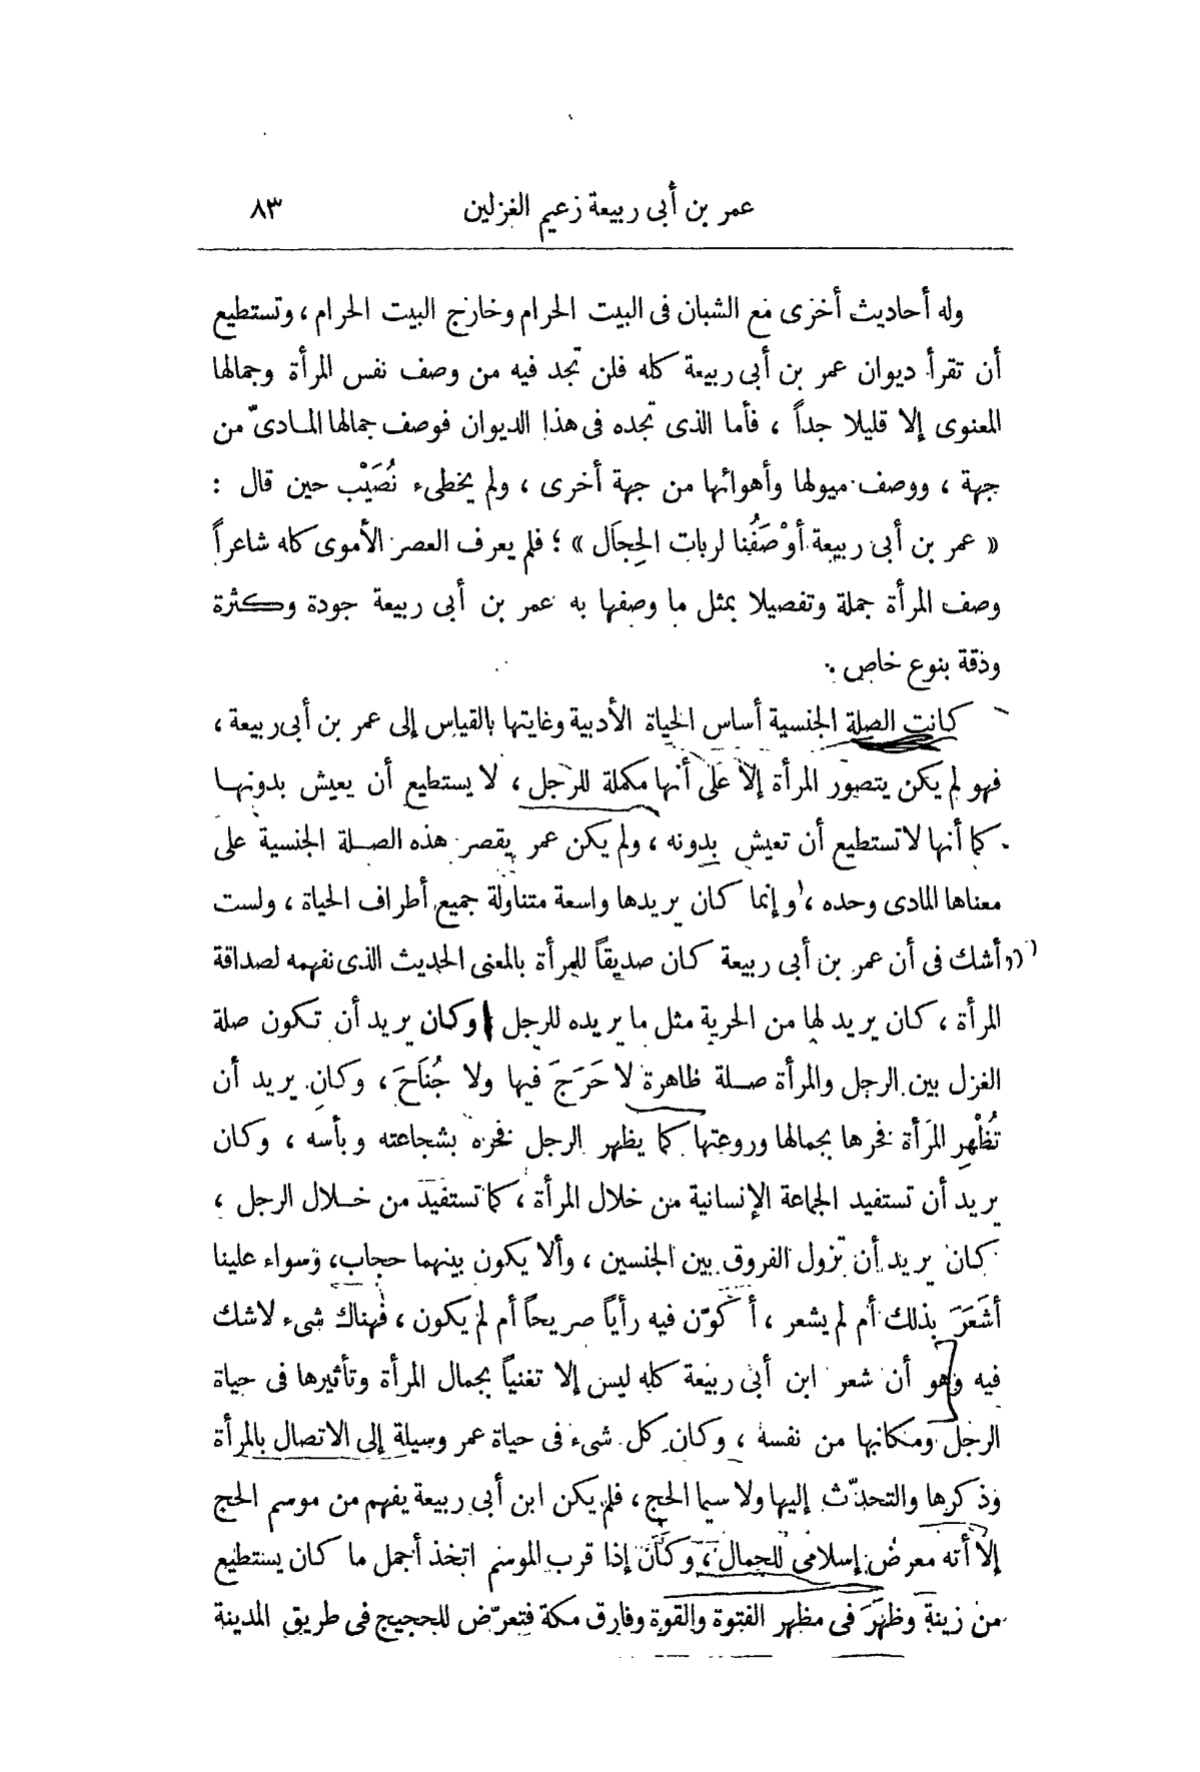 عمر بن أبى ربيعة زعيم الغزلين ٨٣
وله أحاديث أخرى مع الشبان فى البيت الحرام وخارج البيت الحرام ، وتستطيع
أن تقرأ ديوان عمر بن أبى ربيعة كله فلن تجد فيه من وصف نفس المرأة وجمالها
المعنوى إلا قليلا جداً ، فأما الذى تجده فى هذا الديوان فوصف جمالها المـادىّ من
جهة ، ووصف ميولها وأهوائها من جهة أخرى ، ولم يخطىء نُصَيْب حين قال :
« عمر بن أبى ربيعة أوْصَفُنا لربات الحِجاَل » ؛ فلم يعرف العصر الأموى كله شاعراً
وصف المرأة جملة وتفصيلا بمثل ما وصفها به عمر بن أبى ربيعة جودة وكثرة
وذقة بنوع خاص .
كانت الصلة الجنسية أساس الحياة الأدبية وغايتها بالقياس إلى عمر بن أبى ربيعة ،
فهو لم يكن يتصور المرأة إلا على أنها مكملة للرجل ، لا يستطيع أن يعيش بدونهـا
كما أنها لا تستطيع أن تعيش بدونه ، ولم يكن عمر يقصر هذه الصـلة الجنسية على
معناها المادى وحده ، وإنما كان يريدها واسعة متناولة جميع أطراف الحياة ، ولست
أشك فى أن عمر بن أبى ربيعة كان صديقاً للمرأة بالمعنى الحديث الذى نفهمه لصداقة
المرأة ، كان يريد لها من الحرية مثل ما يريده للرجل وكان يريد أن تكون صلة
الغزل بين الرجل والمرأة صـلة ظاهرة لا حَرَجَ فيها ولا جُنَاحَ ، وكان يريد أن
تُظْهِر المَرأة فخرها بجمالها وروعتها كما يظهر الرجل فخره بشجاعته وبأسه ، وكان
يريد أن تستفيد الجماعة الإنسانية من خلال المرأة ، كما تستفيد من خـلال الرجل ،
كان يريد أن تزول الفروق بين الجنسين ، وألا يكون بينهما حجاب، وسواء علينا
أشَعَرَ بذلك أم لم يشعر ، أ كوّن فيه رأياً صريحاً أم لم يكون ، فهناك شىء لاشك
فيه وهو أن شعر ابن أبى ربيعة كله ليس إلا تغنياً بجمال المرأة وتأثيرها فى حياة
الرجل ومكانها من نفسه ، وكان كل شىء فى حياة عمر وسيلة إلى الاتصال بالمرأة
وذكرها والتحدّث إليها ولا سيما الحج ، فلم يكن ابن أبى ربيعة يفهم من موسم الحج
إلا أنه معرض إسلامى للجمال ، وكان إذا قرب الموسم اتخذ أجمل ما كان يستطيع
من زينة وظهَرَ فى مظهر الفتوة والقوة وفارق مكة فتعرّض للحجيج فى طريق المدينة